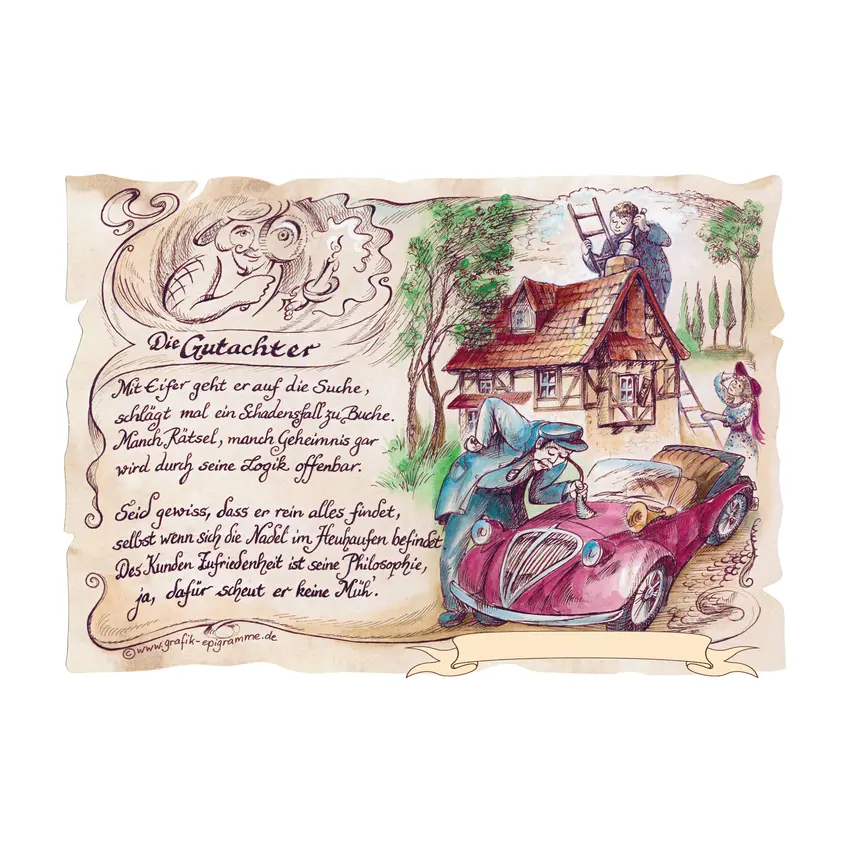 Die Gutachter
Mit Eifer geht er auf die Suche,
schlägt mal ein Schadensfall zu Buche.
Manch Rätsel, manch Geheimnis gar
wird durch seine Logik offenbar.
Seid gewiss, dass er rein alles findet,
selbst wenn sich die Nadel im Heuhaufen befindet
Des Kunden Zufriedenheit ist seine Philosophie,
ja, dafür scheut er keine Müh'.
©www.grafik-epigramme.de